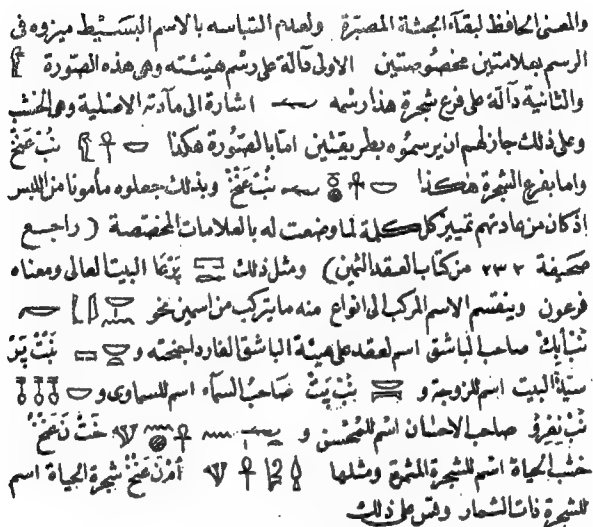 والمعنى الحافظ لبقآء الجثة المصبّرة ولعدم التباسه بالاسم البسَـيط ميزوه فى
الرسم بعلامتين مخصُوصتين الاولى دَآلة على رسْم هيئـته وهى هذه الصّورة 𓀾
والثانية دآلة على فرع شجرة هذا رسْمه 𓆱 اشارة الى مآدته الاصْلية وهى الخشب
وعلى ذلك جاز لهم ان يرسموُه بطريقتين امّا بالصّورة هكذا 𓎟𓋹𓀾 نُبْ عَنْخْ
واما بفرع الشجرة هٰكـذا 𓎟𓋹𓈖𓐍𓆱 نُبْت عَنْخْ وبذلك جعلوه مأمونا من اللبس
إذ كان من عادتهم تمييز كل كـلمة لما وضعت له بالعلامات المخصّصة ( راجـع
صحيفة ٢٣٢ من كتاب العقد الثمين) ومثل ذلك 𓉐𓉻 پَرْعَا البيت العالى ومعناه
فرعون وينقسم الاسم المركب الى انواع منه ما يتركب من اسمين نحو
صَاحب الباشق اسم لعقد على هيئة الباشق الفارد اجنحته و 𓎟𓏏𓉐 نَبْتْ پَرْ
سيّدة البيت اسم للزوجة و 𓎟𓊪𓏏𓇯 نُبْ پَتْ صَاحبُ السمآء اسم للسماوى و 𓎟𓄤𓄤𓄤
نُبْ نِفِرُو صاحب الاحسَان اسم للمُحْسن و خَتْ نَ عَنْخْ
خشب الحياة اسم للشجرة المثمرة ومثلها أمْ نَ عَنْخْ شجرة الحياة اسم
للشجرة ذات الثمار وقس على ذلك